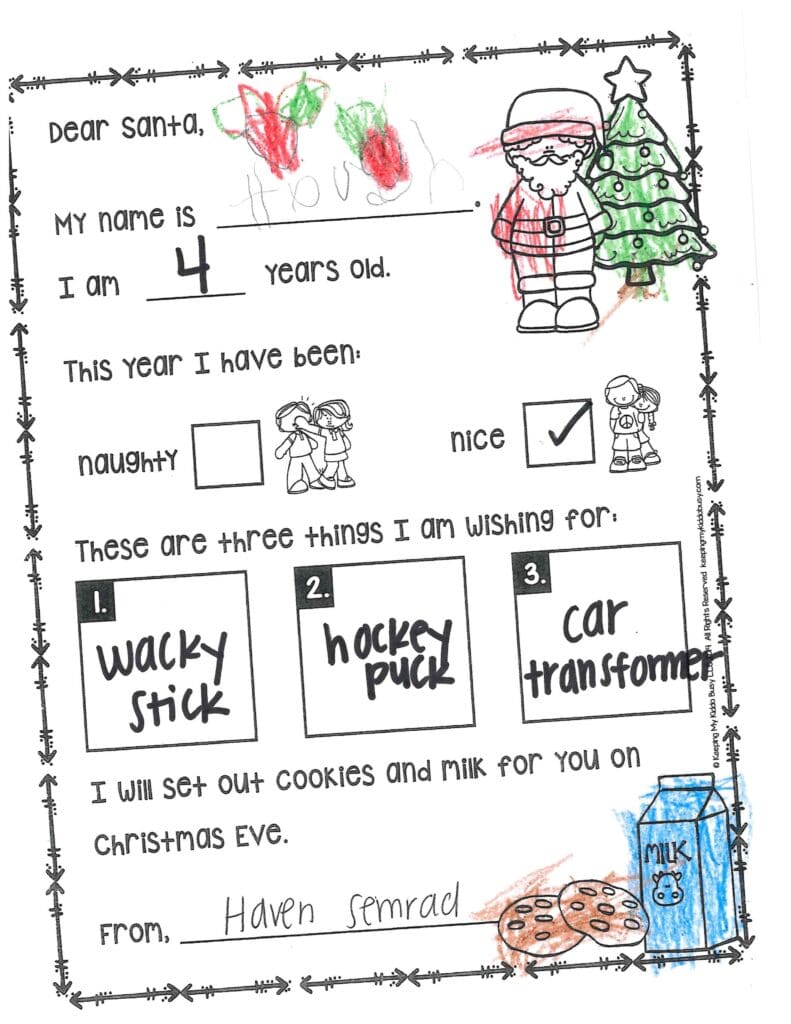 Dear Santa,
My name is .
I am 4 years old.
This year I have been:
naughty nice ✓
These are three things I am wishing for:
1. 2. 3.
wacky stick
hockey puck
car transformer
I will set out cookies and milk for you on
Christmas Eve.
MILK
From, Haven Semrad
© Keeping My Kiddo Busy All Rights Reserved keepingmykiddobusy.com